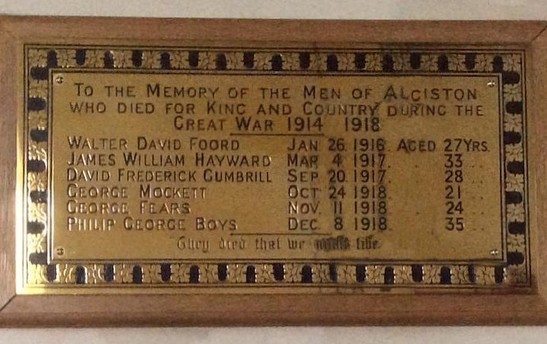 TO THE MEMORY OF THE MEN OF ALCISTON
WHO DIED FOR KING AND COUNTRY DURING THE
GREAT WAR 1914 1918
WALTER DAVID FOORD JAN 26 1916 AGED 27 YRS.
JAMES WILLIAM HAYWARD MAR 4 1917. 33
DAVID FREDERICK GUMBRILL SEP 20 1917. 28
GEORGE MOCKETT OCT 24 1918 21
GEORGE FEARS NOV. 11 1918 24
PHILIP GEORGE BOYS DEC. 8 1918. 35
They died that we might live.